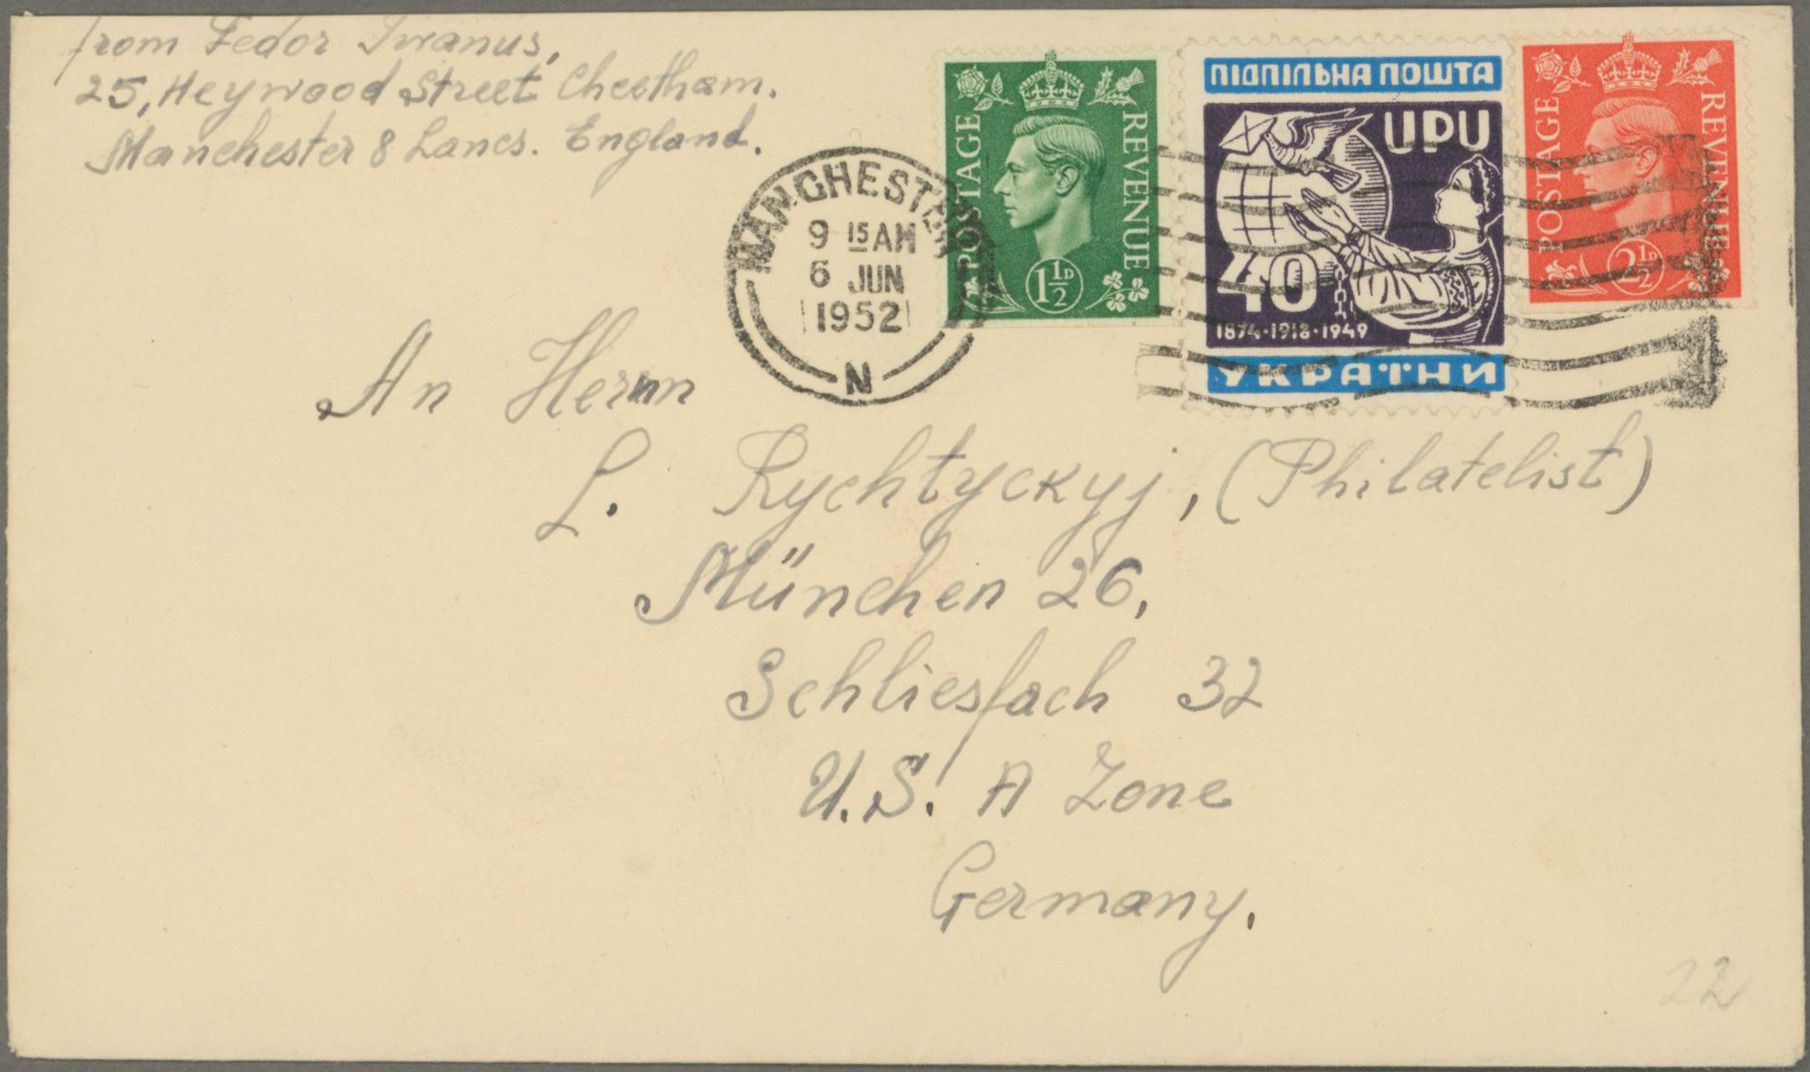 from Fedor Iwanus,
25, Heywood Street Cheetham.
Manchester 8 Lancs. England.
MANCHESTER
9 15 AM
6 JUN
1952
N
POSTAGE REVENUE
1½D
ПІДПІЛЬНА ПОШТА
UPU
40
1874·1918·1949
УКРАЇНИ
POSTAGE REVENUE
2½D
An Herrn
L. Rychtyckyj, (Philatelist)
München 26,
Schliesfach 32
U.S. A Zone
Germany.
22